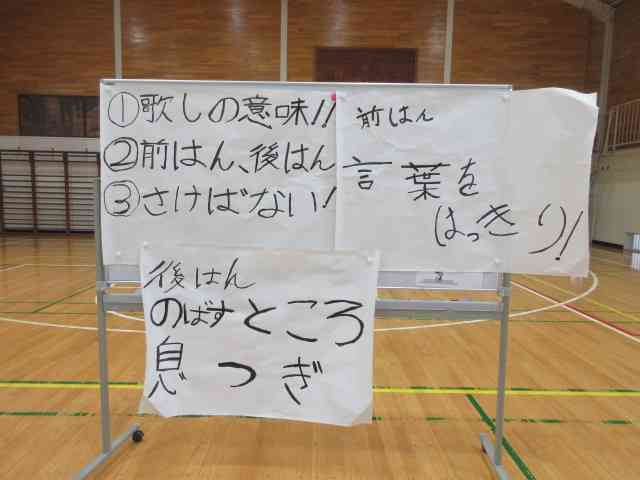 ①歌しの意味!!
②前はん、後はん
③さけばない!
前はん
言葉を
はっきり!
後はん
のばすところ
息つぎ